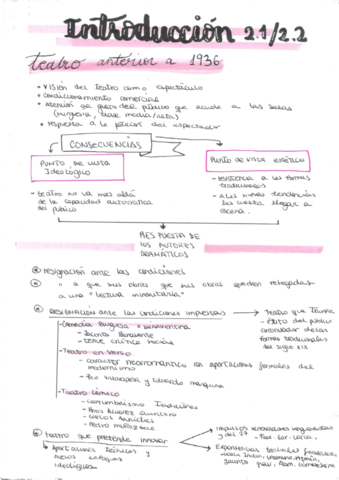 Introducción 2.1/2.2
teatro anterior a 1936
• Visión del teatro como espectáculo
• condicionamiento comercial
• atención al gusto del público que acude a las salas
(burguesía, clase media/alta)
• respuesta a la petición del espectador
CONSECUENCIAS
PUNTO DE VISTA
IDEOLÓGICO
PUNTO DE VISTA ESTÉTICO
- teatro no va más allá
de la capacidad autocrítica
del público
- resistencia a las formas
tradicionales
- a las nuevas tendencias
les cuesta llegar a
escena.
RESPUESTA DE
LOS AUTORES
DRAMÁTICOS
resignación ante las condiciones
" a que sus obras que sus obras queden relegadas
a una "lectura minoritaria"
RESIGNACIÓN ante las condiciones impuestas
→ Teatro que triunfa
- Éxito del público
continuador de las
formas tradicionales
del siglo XIX
- Comedia Burguesa o benaventina
- Jacinto Benavente
- leve crítica social
- Teatro en verso
- carácter neorromántico con aportaciones formales del
modernismo
- Fco Villaespesa y Eduardo Marquina
- Teatro cómico
- costumbrismo tradicional
- Hnos Álvarez Quintero
- Carlos Arniches
- Pedro Muñoz Seca
teatro que pretende innovar
- Aportaciones técnicas y
nuevos enfoques
ideológicos
→ Impulsos renovadores vanguardistas
y del 27
- Fed. Gar. Lorca,
→ Experiencias teatrales